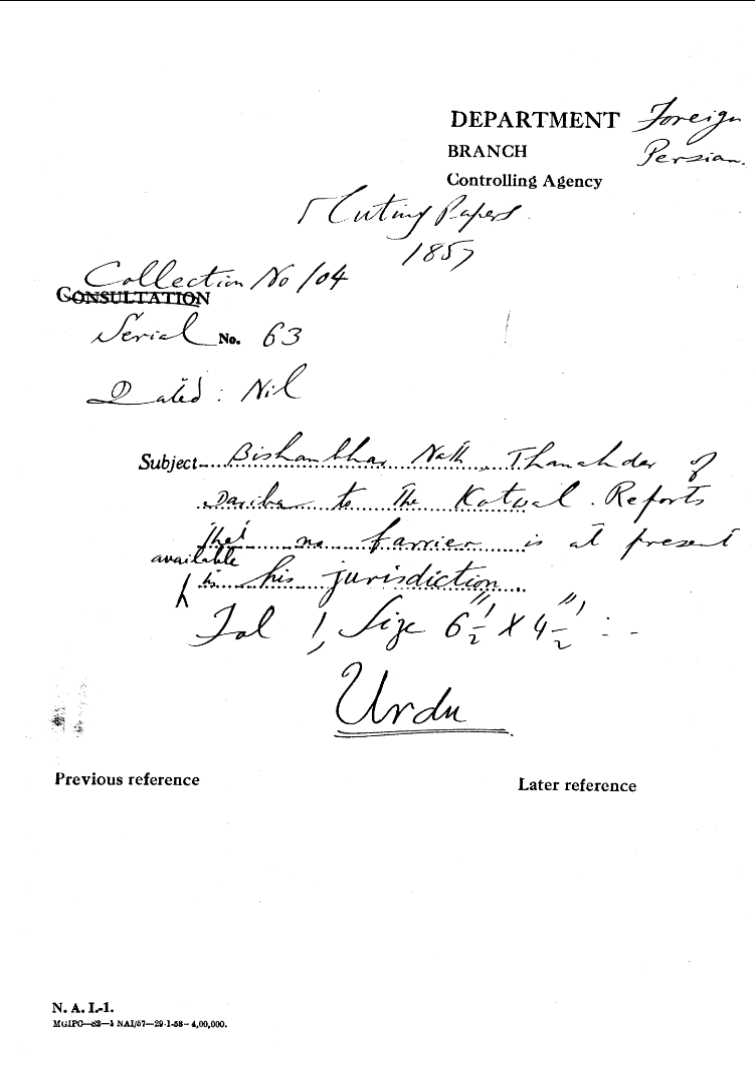 DEPARTMENT Foreign
BRANCH Persian.
Controlling Agency
Mutiny Papers
1857
Collection No 104
CONSULTATION
Serial No. 63
Dated : Nil
Subject Bishambhar Nath Thanahdar of
Dariba to the Kotwal. Reports
that no farrier is at present
available
in his jurisdiction.
Fol 1, Size 6½" X 4½" : -
Urdu
Previous reference Later reference
N. A. I.-1.
MGIPC—S2—1 NAI/57—29-1-58—4,00,000.